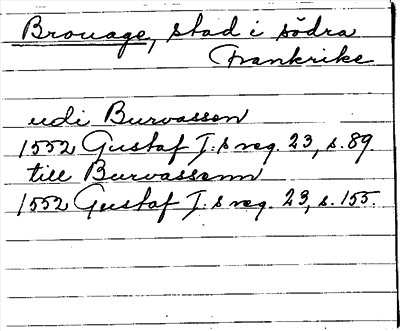 Brouage, stad i södra
Frankrike
udi Burvassen
1552 Gustaf I:s reg. 23, s. 89
till Burvassenn
1552 Gustaf I:s reg. 23, s. 155.